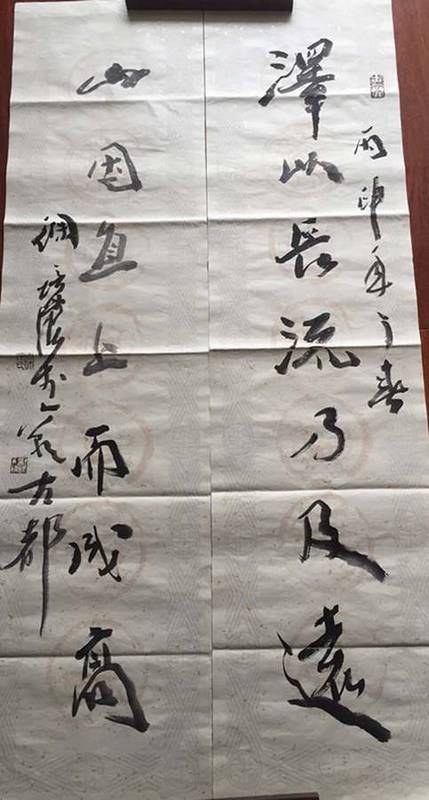 丙申年之春
澤以長流乃及遠
山因直上而成高
古都